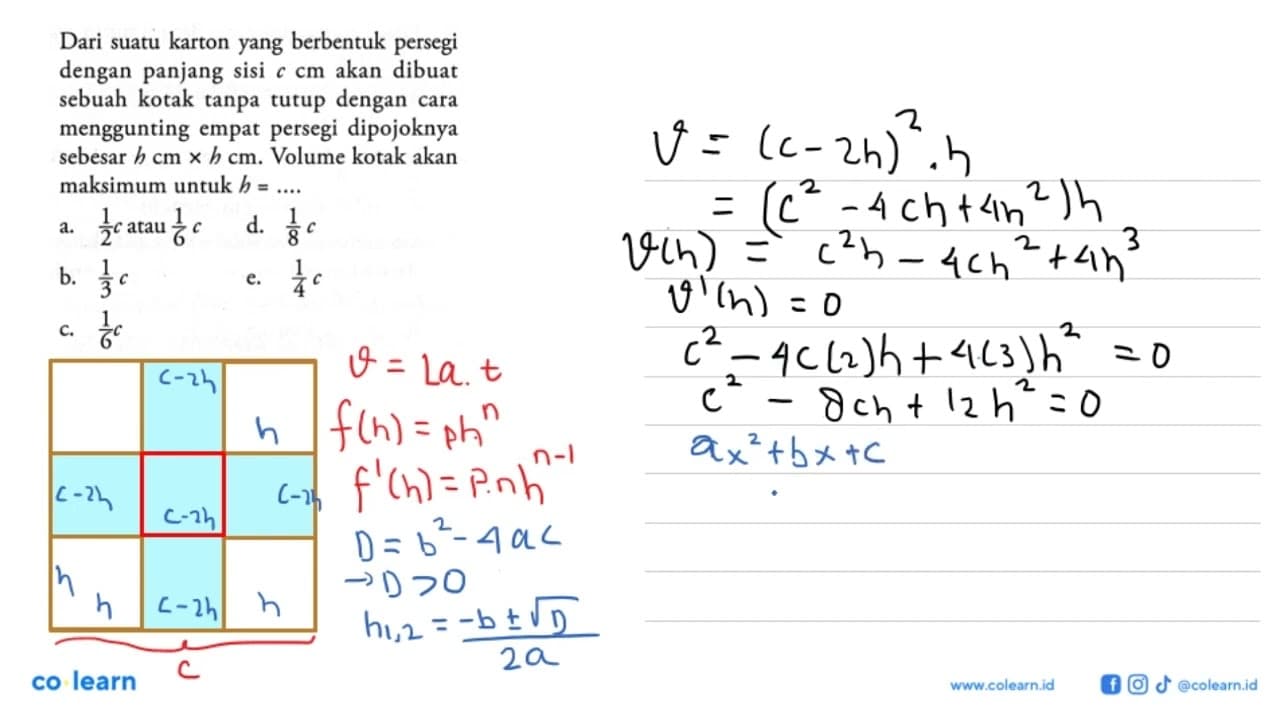 Dari suatu karton yang berbentuk persegi
dengan panjang sisi c cm akan dibuat
sebuah kotak tanpa tutup dengan cara
menggunting empat persegi dipojoknya
sebesar h cm × h cm. Volume kotak akan
maksimum untuk h = ....
a. 1/2 c atau 1/6 c d. 1/8 c
b. 1/3 c e. 1/4 c
c. 1/6 c
c-2h
h
c-2h c-2h c-2h
h h c-2h h
c
V = La. t
f(h) = ph^n
f'(h) = P.nh^(n-1)
D = b² - 4ac
→ D > 0
h1,2 = (-b ± √D)/2a
V = (c - 2h)² . h
= (c² - 4ch + 4h²)h
V(h) = c²h - 4ch² + 4h³
V'(h) = 0
c² - 4c(2)h + 4(3)h² = 0
c² - 8ch + 12h² = 0
ax² + bx + c
co learn
www.colearn.id @colearn.id